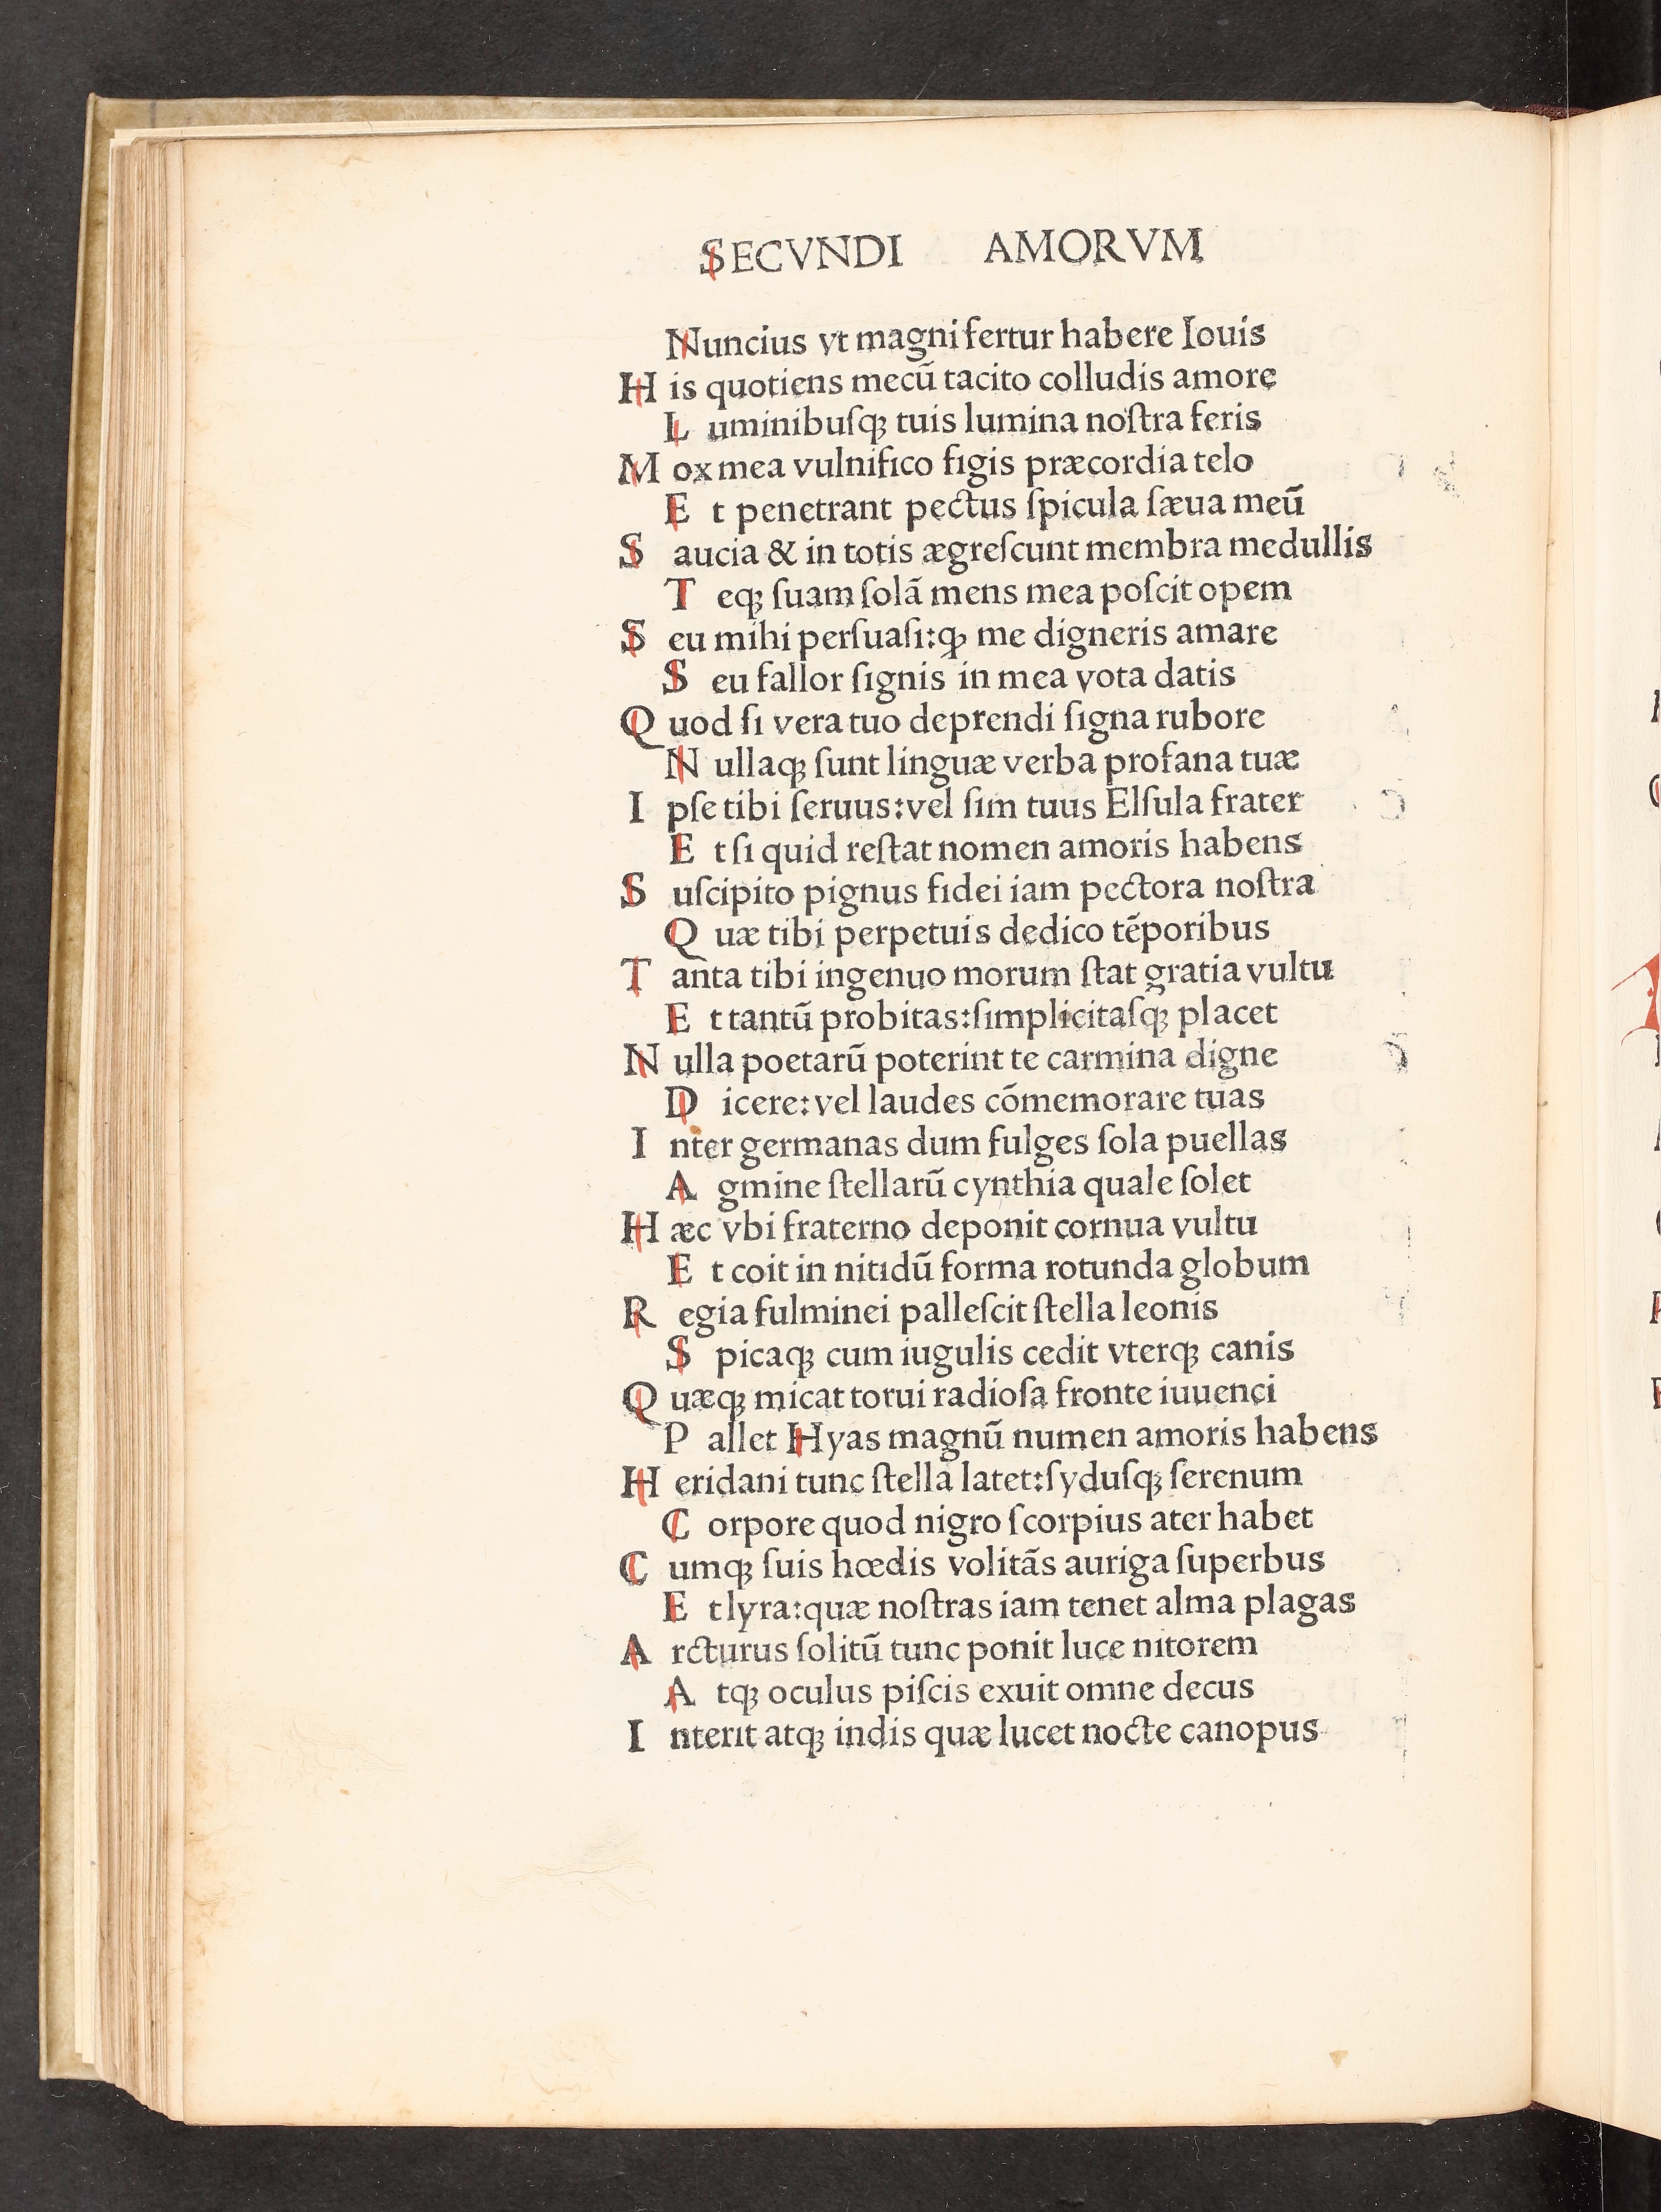 SECVNDI AMORVM
Nuncius vt magni fertur habere Iouis
H is quotiens mecū tacito colludis amore
L uminibuſqꝫ tuis lumina noſtra feris
M ox mea vulnifico figis præcordia telo
E t penetrant pectus ſpicula ſæua meū
S aucia & in totis ægreſcunt membra medullis
T eqꝫ ſuam ſolā mens mea poſcit opem
S eu mihi perſuaſi:ꝙ me digneris amare
S eu fallor ſignis in mea vota datis
Q uod ſi vera tuo deprendi ſigna rubore
N ullaqꝫ ſunt linguæ verba profana tuæ
I pſe tibi ſeruus:vel ſim tuus Elſula frater
E t ſi quid reſtat nomen amoris habens
S uſcipito pignus fidei iam pectora noſtra
Q uæ tibi perpetuis dedico tēporibus
T anta tibi ingenuo morum ſtat gratia vultu
E t tantū probitas:ſimplicitaſqꝫ placet
N ulla poetarū poterint te carmina digne
D icere:vel laudes cōmemorare tuas
I nter germanas dum fulges ſola puellas
A gmine ſtellarū cynthia quale ſolet
H æc vbi fraterno deponit cornua vultu
E t coit in nitidū forma rotunda globum
R egia fulminei palleſcit ſtella leonis
S picaqꝫ cum iugulis cedit vterqꝫ canis
Q uæqꝫ micat torui radioſa fronte iuuenci
P allet Hyas magnū numen amoris habens
H eridani tunc ſtella latet:ſyduſqꝫ ſerenum
C orpore quod nigro ſcorpius ater habet
C umqꝫ ſuis hœdis volitās auriga ſuperbus
E t lyra:quæ noſtras iam tenet alma plagas
A rcturus ſolitū tunc ponit luce nitorem
A tqꝫ oculus piſcis exuit omne decus
I nterit atqꝫ indis quæ lucet nocte canopus